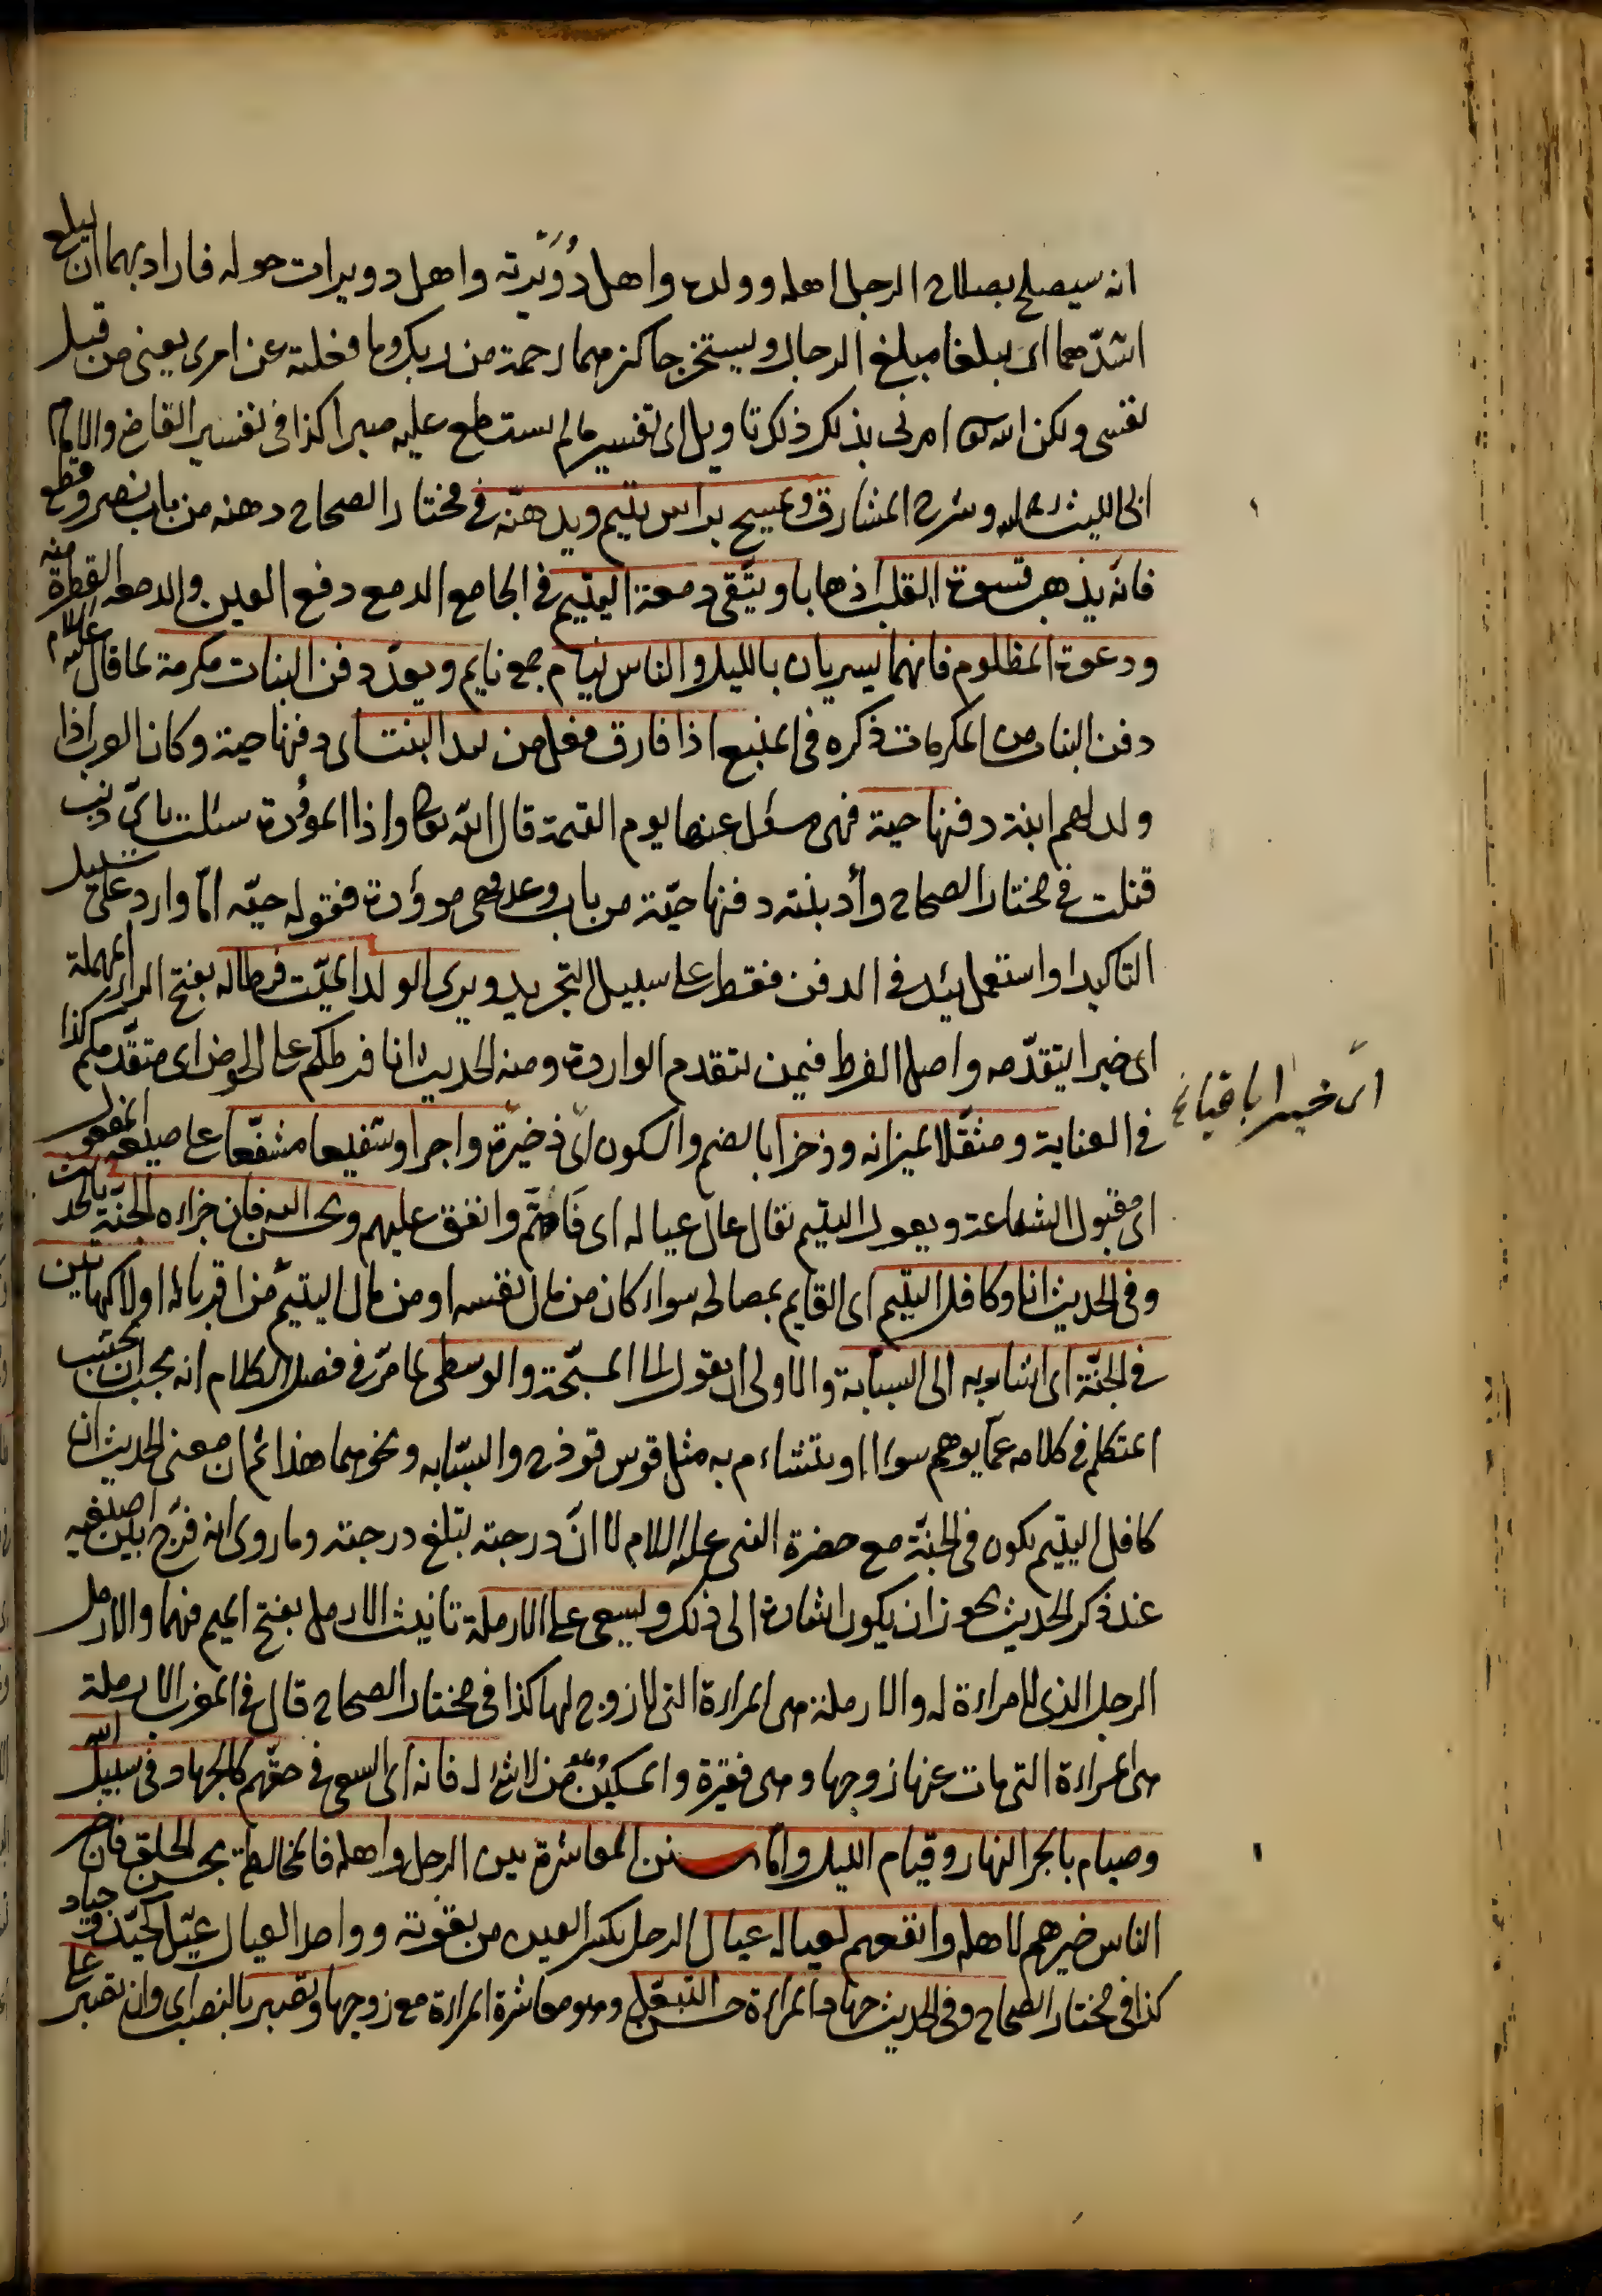 انه سيصلح بصلاح الرجل اهله وولده واهل دُوَيْرته واهل دويرات حوله فاراد بهما ان يبلغ
اشدّهما اى يبلغا مبلغ الرجال ويستخرجا كنزهما رحمة من ربك وما فعلته عن امرى يعنى من قبل
نفسى ولكن الله تعالى امرنى بذلك ذلك تاويل اى تفسير ما لم يستطع عليه صبرا كذا فى تفسير القاضى والامام
ابى الليث رحمه الله وشرح المشارق ويمسح براس يتيم ويدهنه فى مختار الصحاح دهنه من باب نصر وقطع
فانّه يذهب قسوة القلب اذهابا ويتّقى دمعة اليتيم فى الجامع الدمع دفع العين والدمعه القطرة منه
ودعوة المظلوم فانهما يسريان بالليل والناس نيام جمع نايم ويعدّ دفن البنات مكرمة لما قال عليه السلام
دفن البنات من المكرمات ذكره فى المنبع اذا فارق فعل من يئد البنت اى دفنها حية وكان العرب اذا
ولد لهم ابنة دفنها حية فهى مسئل عنها يوم القيمة قال الله تعالى واذا الموؤدة سئلت باىّ ذنب
قتلت فى مختار الصحاح وأد بنته دفنها حيّة من باب وعد فهى موؤدة فقوله حيّه امّا وارد على سبيل
التاكيد او استعمل يئد فى الدفن فقط على سبيل التجريد ويرى الولد الميّت فرطا له بفتح الراء المهملة
اى خيرا يتقدّمه واصل الفرط فيمن يتقدم الواردة ومنه الحديث انا فرطكم على الحوض اى متقدّمكم كذا
اى خيرا باقيا
فى العناية ومثقّلا لميزانه وذخرا بالضم والسكون اى ذخيرة واجرا وشفيعا مشفّعا على صيغه المفعول
اى مقبول الشفاعة ويعول اليتيم يقال عال عياله اى قاتهم وانفق عليهم ويحسن اليه فان جزاءه الجنّة بالحديث
وفى الحديث انا وكافل اليتيم اى القايم بمصالحه سواء كان من مال نفسه او من مال اليتيم من اقربائه اولا كهاتين
فى الجنّة اى اشار به الى السبابة والاولى ان يقول الى المسبّحة والوسطى لما مرّ فى فصل الكلام انه يجب ان يجتنب
المتكلم فى كلامه عمّا يوهم سوءا او يتشاءم به مثل قوس قوذح والسبّابه ونحوهما هذا ثم ان معنى الحديث ان
كافل اليتيم يكون فى الجنّة مع حضرة النبى عليه السلام لا انّ درجته تبلغ درجته وما روى انه فرّج بين اصبعيه
عند ذكر الحديث يجوز ان يكون اشارة الى ذلك ويسعى على الارملة تانيث الارمل بفتح الميم فهما والارمل
الرجل الذى لا امراءة له والارملة هى المراءة التى لا زوج لها كذا فى مختار الصحاح قال فى المغرب الارملة
هى المراءة التى مات عنها زوجها وهى فقيرة والمسكين من لا شئ له فانه اى السعى فى حقّهم كالجهاد فى سبيل الله
وصيام بالجر النهار وقيام الليل وامّا سنن المعاشرة بين الرجل واهله فالمخالطة بحسن الخلق فان خير
الناس خيرهم لاهله وانفعهم لعياله عيال الرجل بكسر العين من يقوته وواحد العيال عيّل كجيّد وجياد
كذا فى مختار الصحاح وفى الحديث جهاد المراءة حسن التبعّل وهو معاشرة المراءة مع زوجها وتصبر بالنصب اى وان تصبر على